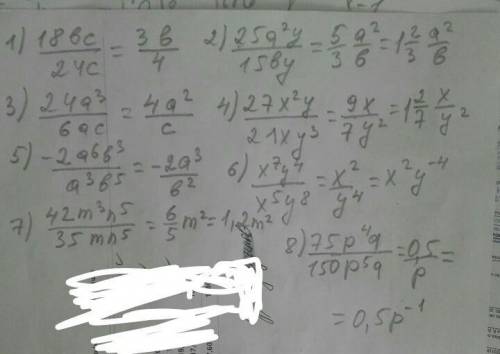 1) 18вс/24с = 3в/4 2) 25a²y/15вy = 5/3 a²/в = 1 2/3 a²/в
3) 24a³/6ac = 4a²/c 4) 27x²y/21xy³ = 9x/7y² = 1 2/7 x/y²
5) -2a⁶в³/a³в⁵ = -2a³/в² 6) x⁷y⁴/x⁵y⁸ = x²/y⁴ = x²y⁻⁴
7) 42m³n⁵/35mn⁵ = 6/5 m² = 1,2m²
8) 75p⁴q/150p⁵q = 0,5/p =
= 0,5p⁻¹